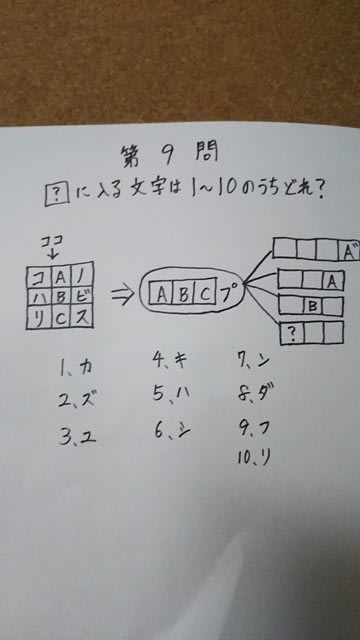 第9問
?に入る文字は1～10のうちどれ?
ココ
↓
コAノ
ハBビ
リCス
⇒
ABCプ
A"
A
B
?
1、カ 4、キ 7、ン
2、ズ 5、ハ 8、ダ
3、ユ 6、シ 9、フ
10、リ